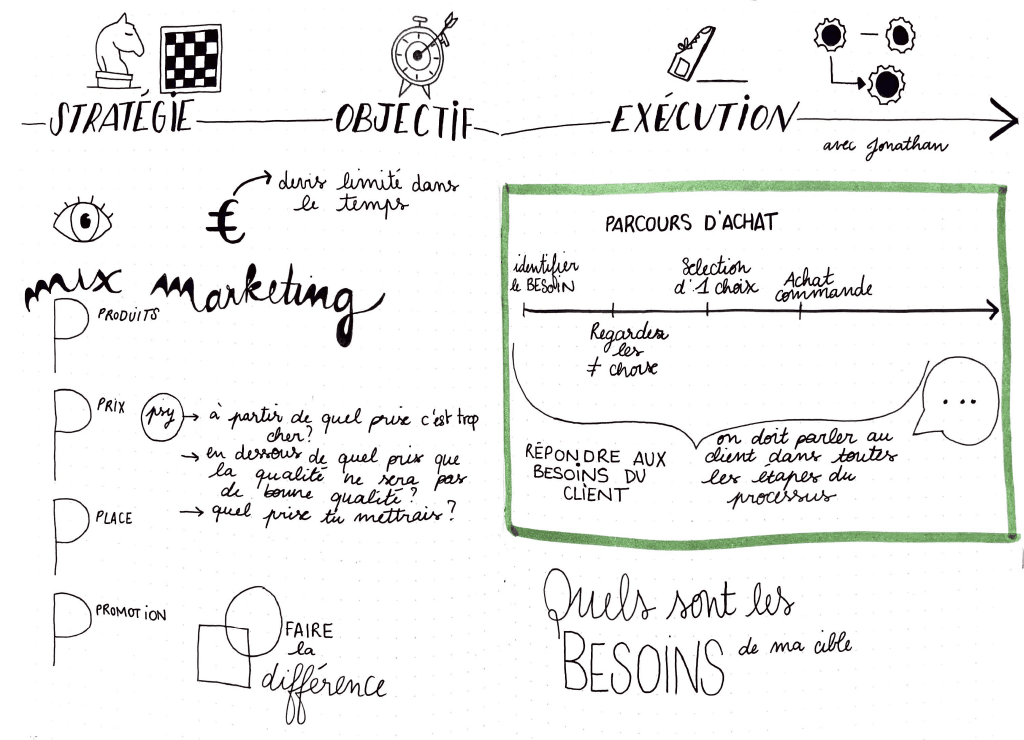 STRATÉGIE
OBJECTIF
EXÉCUTION
avec Jonathan
€
devis limité dans
le temps
mix marketing
PRODUITS
PRIX
psy
→ à partir de quel prix c'est trop
cher?
→ en dessous de quel prix que
la qualité ne sera pas
de bonne qualité?
→ quel prix tu mettrais?
PLACE
PROMOTION
FAIRE
la
différence
PARCOURS D'ACHAT
identifier
le BESOIN
Regarder
les
≠ choix
Sélection
d'1 choix
Achat
commande
...
RÉPONDRE AUX
BESOINS DU
CLIENT
on doit parler au
client dans toutes
les étapes du
processus
Quels sont les
BESOINS de ma cible